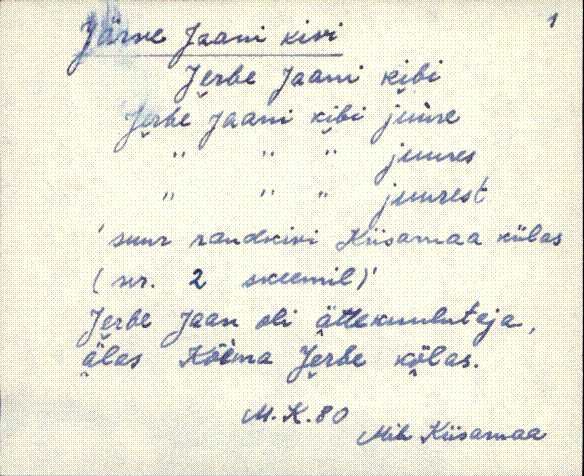 1
Järve Jaani kivi
Jerbe Jaani kibi
Jerbe Jaani kibi juure
" " " juures
" " " juurest
' suur randkivi Kiisamaa külas
(nr. 2 skeemil)'
Jerbe Jaan oli ättekuulutaja,
älas Jerbe külas.
M. K. 80
Kiisamaa